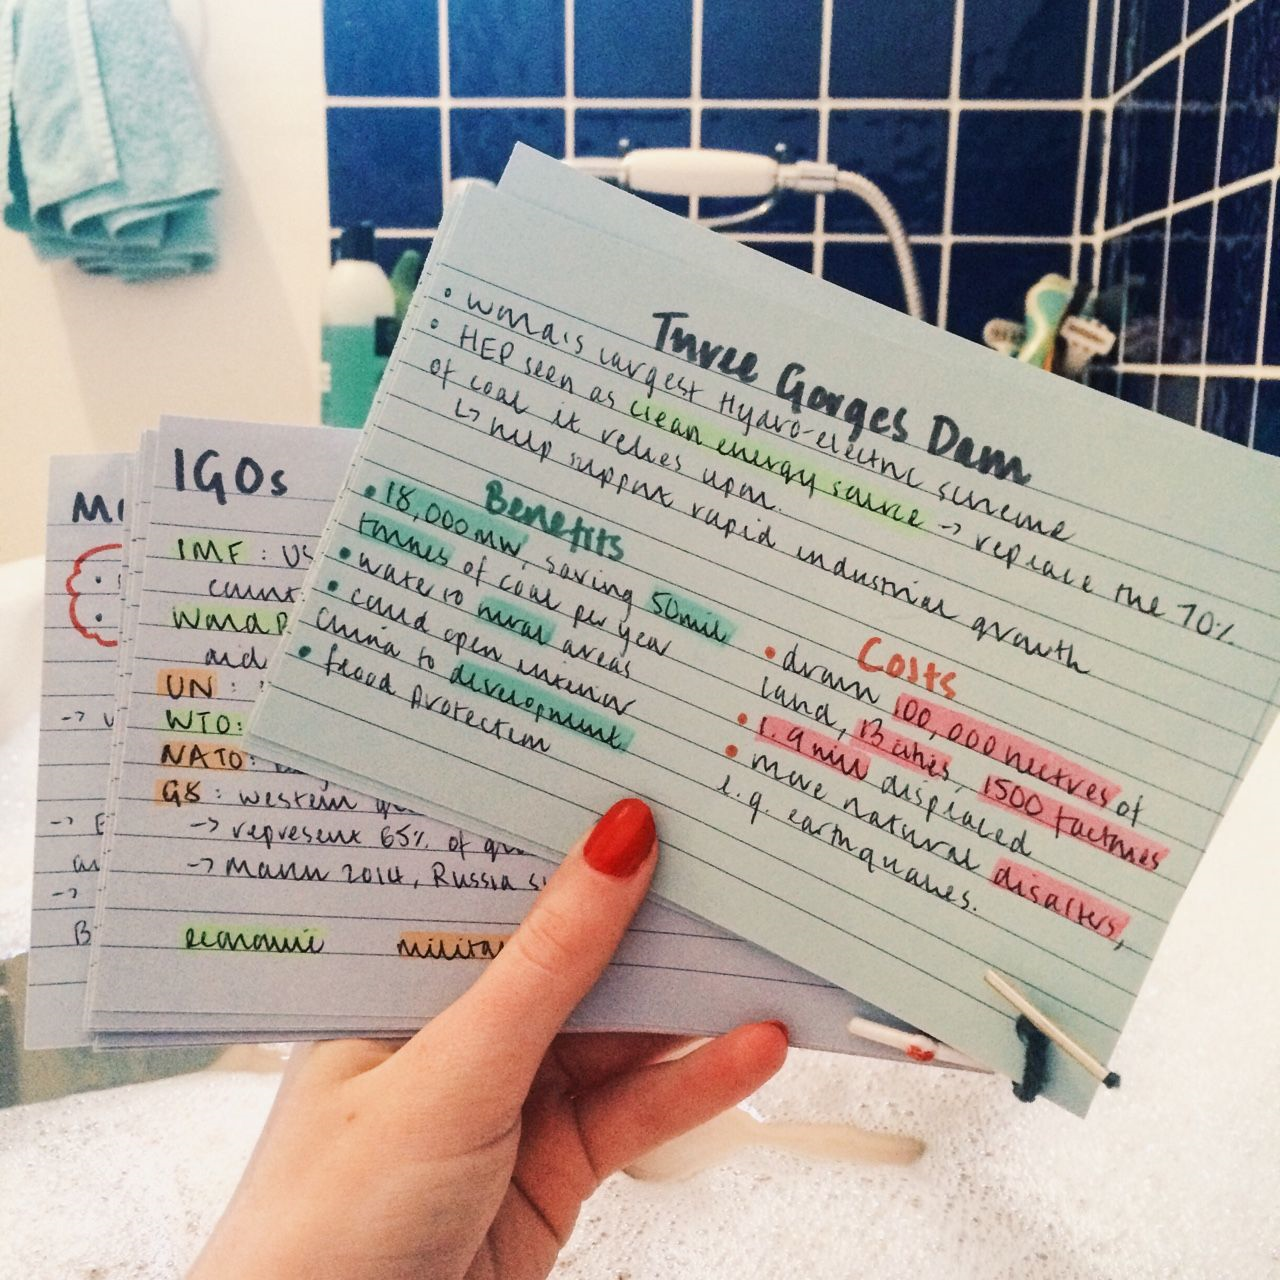 Three Gorges Dam
• World's largest Hydro-electric scheme
• HEP seen as clean energy source → replace the 70%
of coal it relies upon.
↳ help support rapid industrial growth
Benefits
• 18,000MW, saving 50mil
tonnes of coal per year
• water to rural areas
• could open interior
China to development.
• flood protection
Costs
• drown 100,000 hectres of
land, 13 cities, 1500 factories
• 1.9 mill displaced
• more natural disasters,
e.g. earthquakes.
IGOs
IMF : US
count
World B
aid
UN :
WTO:
NATO:
G8 : western
→ represent 65% of
→ March 2014, Russia s
economic militar
M